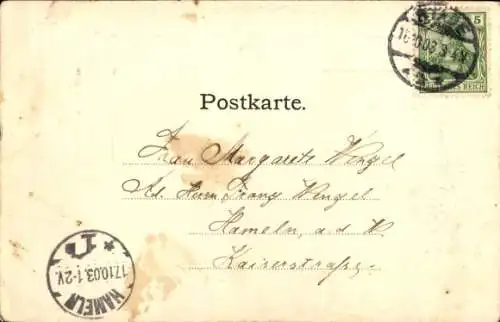 5
16.10.03
DEUTSCHES REICH
Postkarte.
Frau Margarete Wenzel
Ad. Herrn Franz Wenzel
Hameln, a. d. W.
Kaiserstraße
HAMELN
17.10.03.1-2V.